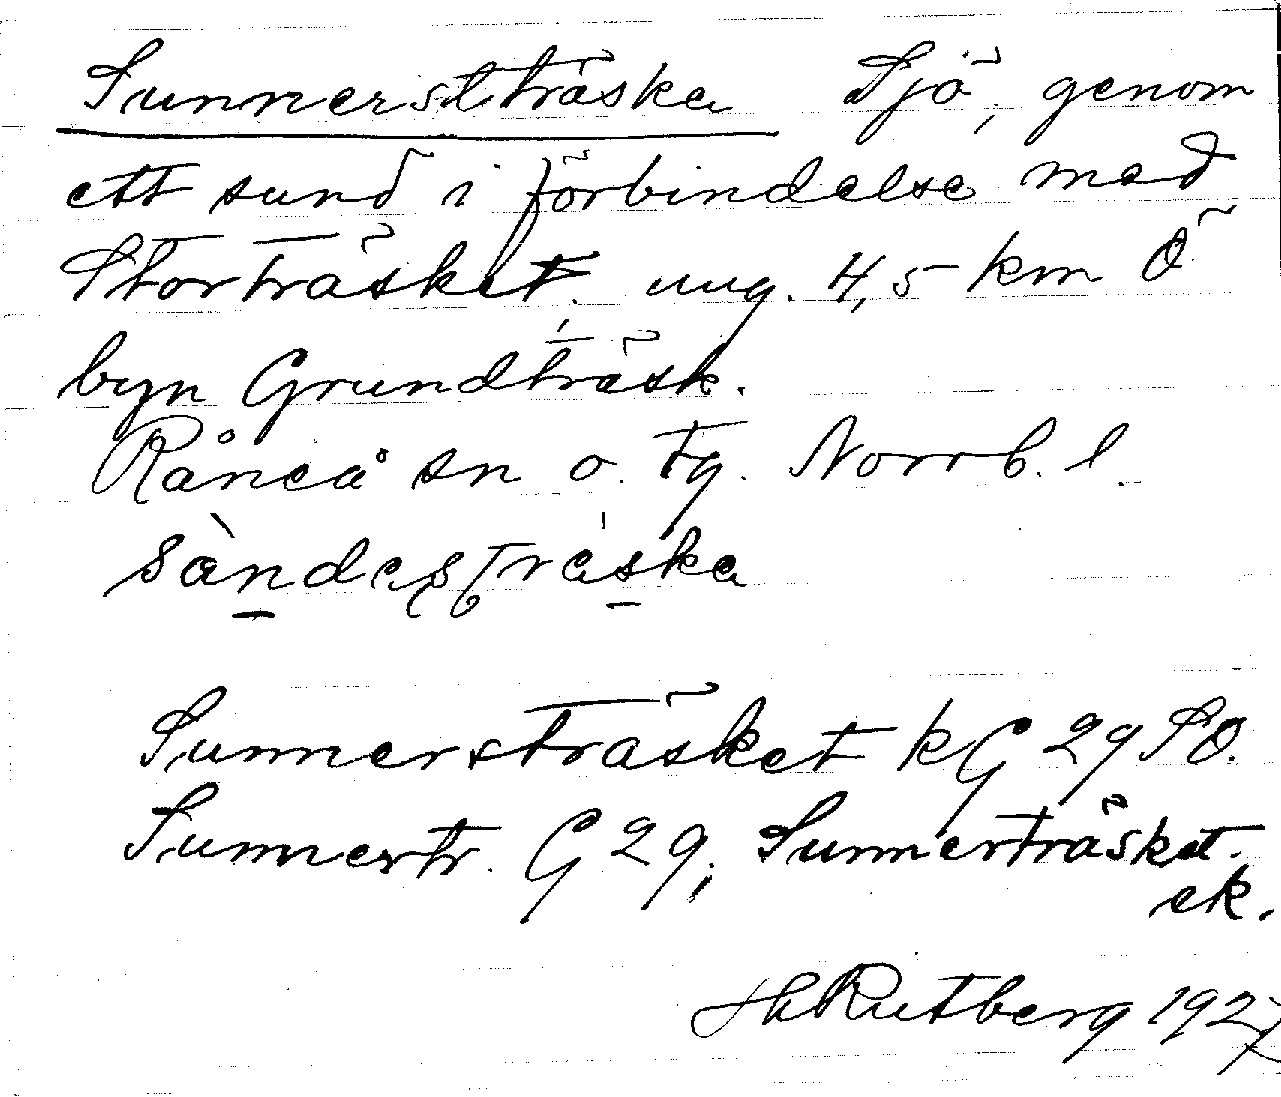 Sunnersträska Sjö, genom
ett sund i förbindelse med
Storträsket, ung. 4,5 km Ö
byn Grundträsk.
Råneå sn o. tg. Norrb. l.
sàndesträska
Sunnersträsket k G 29 SO.
Sunnertr. G 29; Sunnerträsket
ek.
H Rutberg 1927